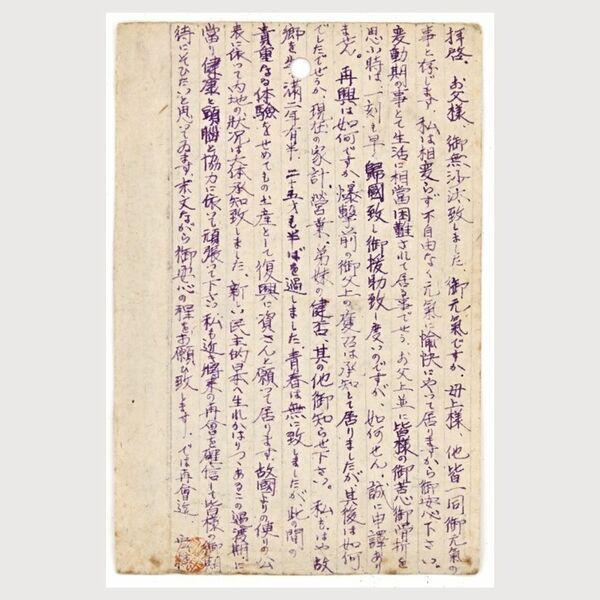 拝啓、お父様、御無沙汰致しました、御元氣ですか、母上様、他皆一同御元氣の
事と存じます 私は相変らず不自由なく元氣に愉快にやって居りますから御安心下さい。
変動期の事とて生活に相當困難されて居る事でせう、お父上並に皆様の御苦心御骨折を
思ふ時は、一刻も早く歸國致し御援助致し度いのですが、如何せん、誠に申譯あり
ません。再興は如何ですか、爆撃前の御父上の應召は承知して居りましたが其後は如何
でしたでせうか、現在の家計、營業、弟妹の健否、其の他御知らせ下さい。私もはや故
郷を 満二年有半、二十五才も半ばを過しました、青春は無に致しましたが、此の間の
貴重なる体驗をせめてもの土産として復興に資さんと願って居ります、故國よりの便りの公
表に依って内地の狀況は大体承知致しました、新しい民主的日本へ生れかはりつゝあるこの過渡期に
當り健康と頭腦と協力に依って頑張って下さい 私も近き將来の再會を確信して皆様の御期
待にそひたいと思ってゐます、末文ながら御安心の程をお願ひ致します、では再會迄